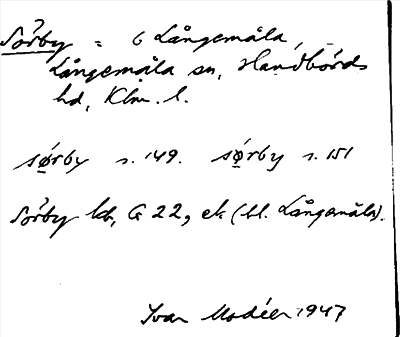 Sörby = G Långemåla,
Långemåla sn, Handbörds
hd, Klm. l.
sørby s. 149. sørby s. 151
Sörby lb, G 22, ek (bl. Långemåla).
Ivar Modéer 1947